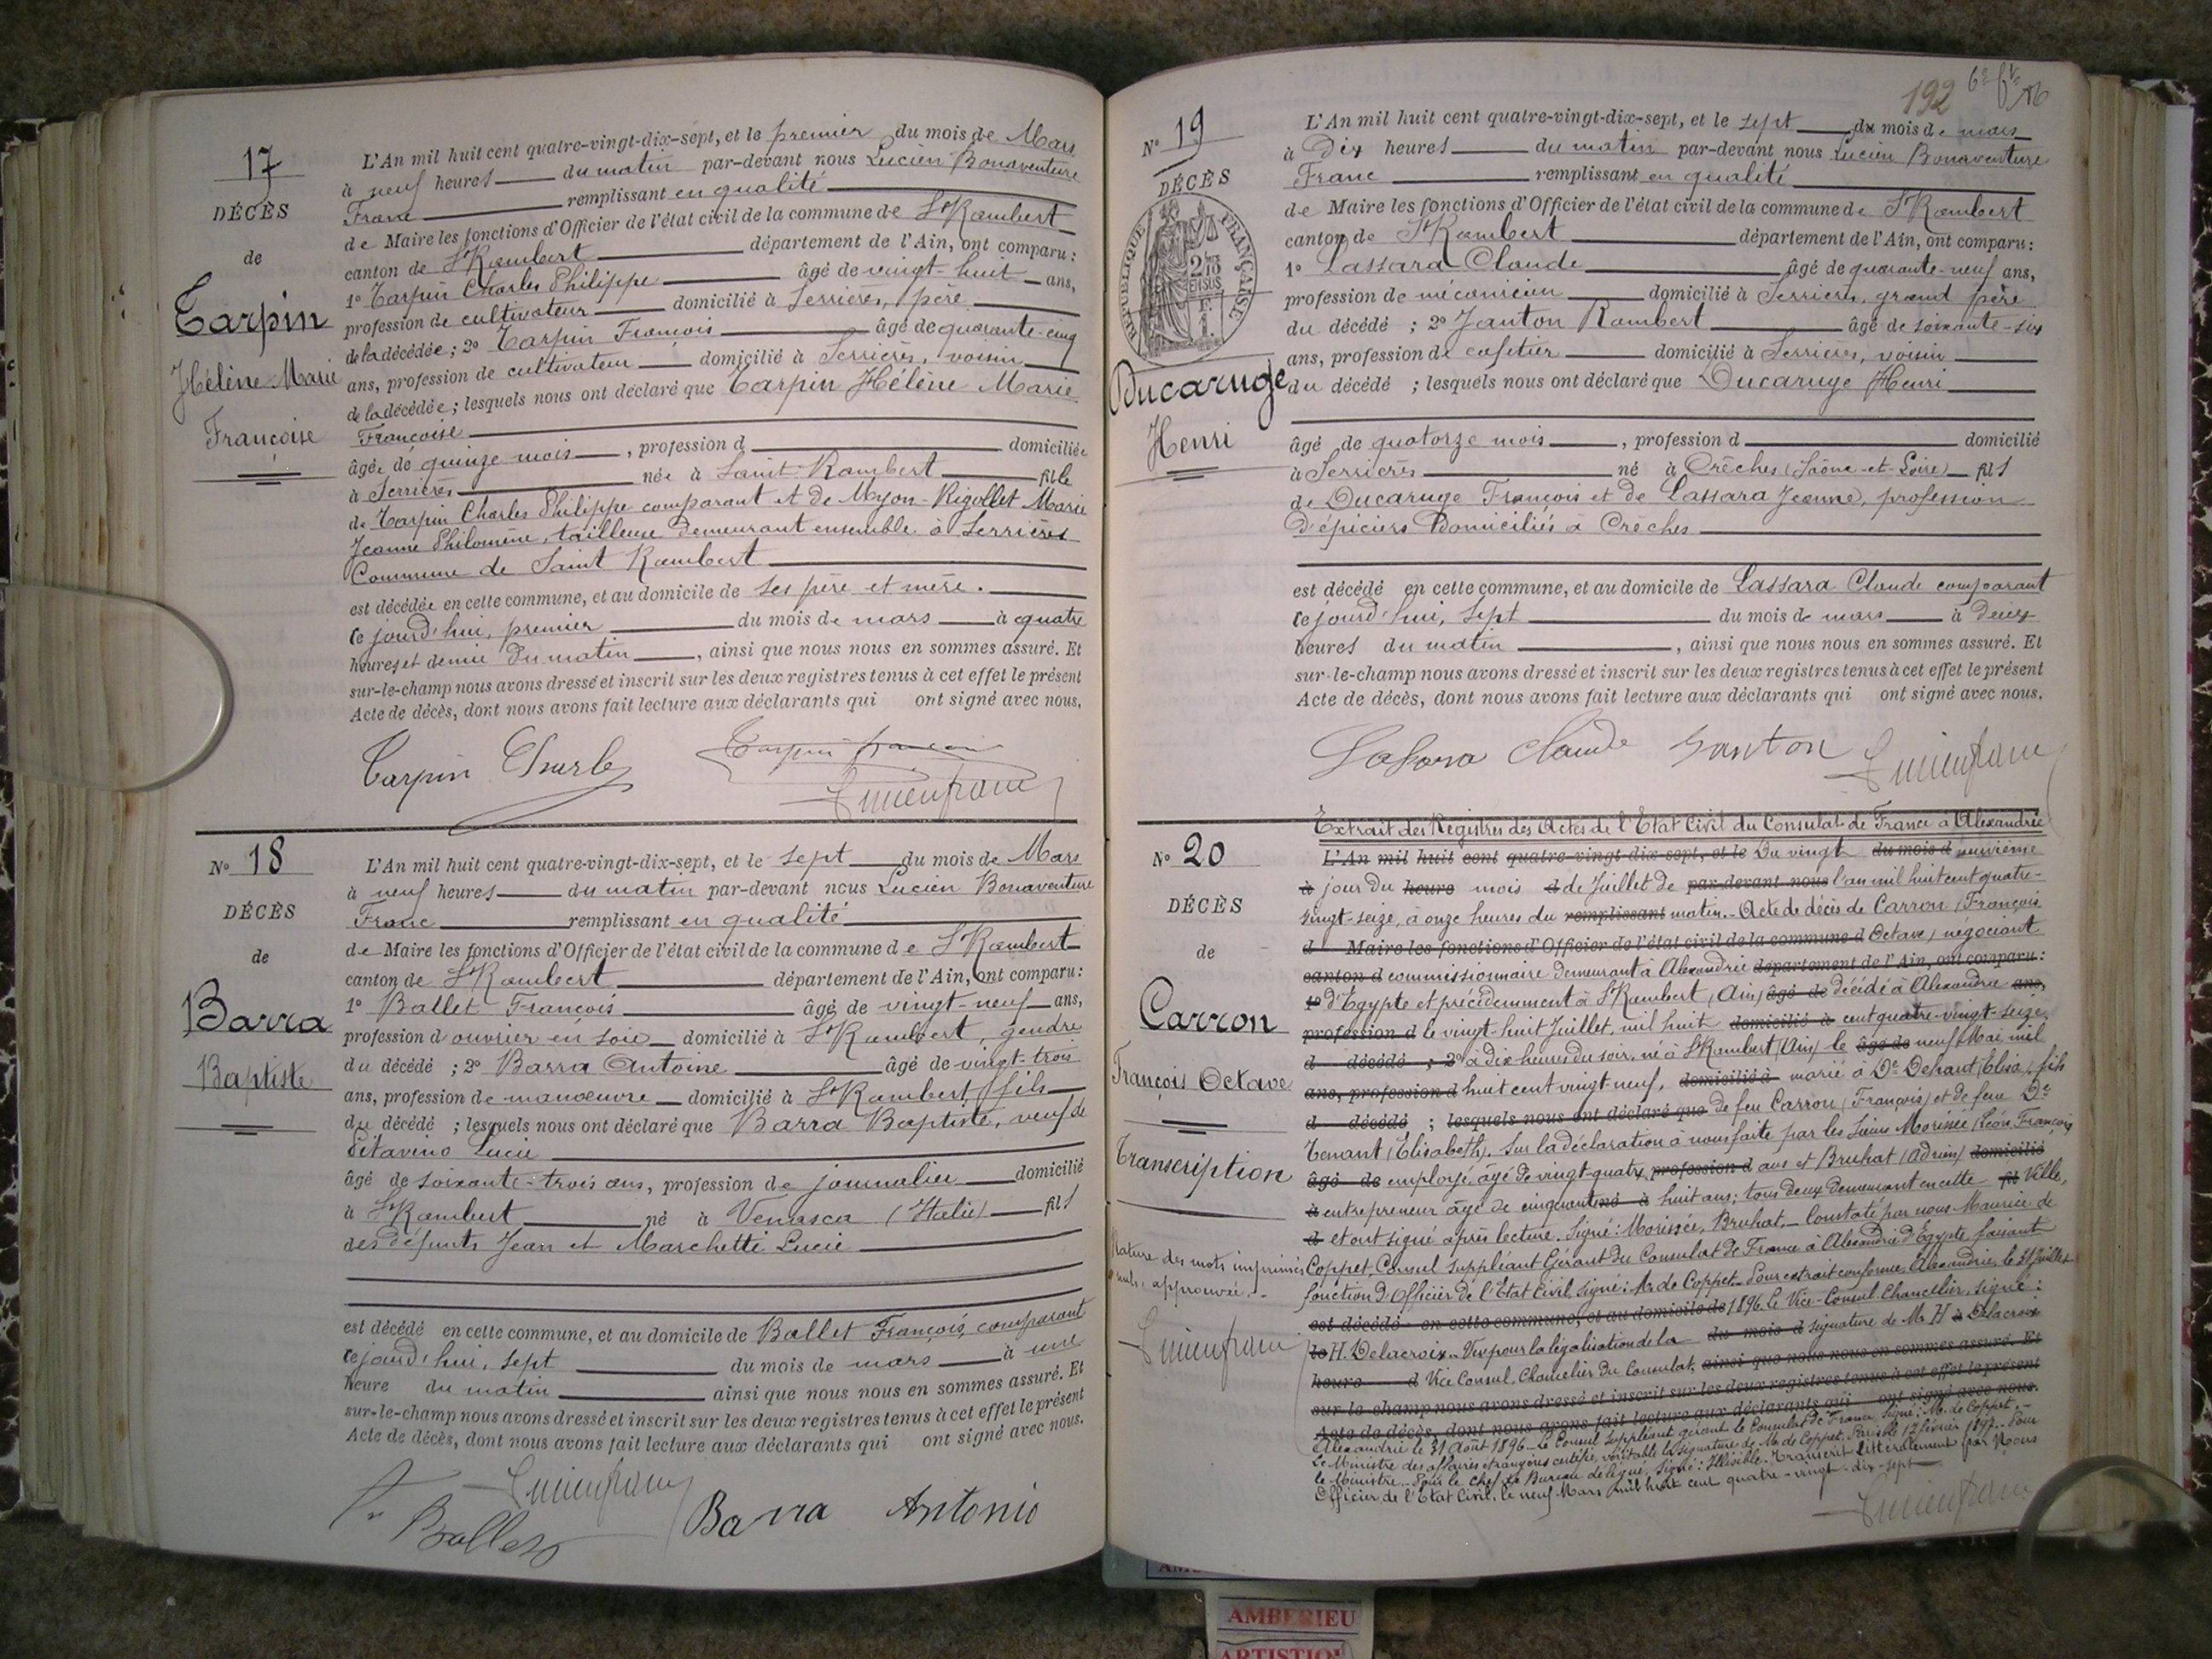 17
DÉCÈS
de
Tarpin
Hélène Marie
Françoise
L'An mil huit cent quatre-vingt-dix-sept, et le premier du mois de Mars
à neuf heures du matin par-devant nous Lucien Bonaventure
Franc remplissant en qualité
de Maire les fonctions d'Officier de l'état civil de la commune de St Rambert
canton de St Rambert département de l'Ain, ont comparu :
1° Tarpin Charles Philippe âgé de vingt-huit ans,
profession de cultivateur domicilié à Serrières, père
de la décédée ; 2° Tarpin François âgé de quarante-cinq
ans, profession de cultivateur domicilié à Serrières, voisin
de la décédée ; lesquels nous ont déclaré que Tarpin Hélène Marie
Françoise
âgée de quinze mois, profession d domiciliée
à Serrières née à Saint-Rambert fille
de Tarpin Charles Philippe comparant et de Myon-Rigollet Marie
Jeanne Philomène, tailleuse demeurant ensemble à Serrières
Commune de Saint Rambert
est décédée en cette commune, et au domicile de ses père et mère.
ce jourd'hui, premier du mois de mars à quatre
heures et demie du matin, ainsi que nous nous en sommes assuré. Et
sur-le-champ nous avons dressé et inscrit sur les deux registres tenus à cet effet le présent
Acte de décès, dont nous avons fait lecture aux déclarants qui ont signé avec nous.
Tarpin Charles Tarpin françois
Lucien franc
N° 18
DÉCÈS
de
Barra
Baptiste
L'An mil huit cent quatre-vingt-dix-sept, et le sept du mois de Mars
à neuf heures du matin par-devant nous Lucien Bonaventure
Franc remplissant en qualité
de Maire les fonctions d'Officier de l'état civil de la commune de St Rambert
canton de St Rambert département de l'Ain, ont comparu :
1° Ballet François âgé de vingt-neuf ans,
profession d'ouvrier en soie domicilié à St Rambert, gendre
du décédé ; 2° Barra Antoine âgé de vingt-trois
ans, profession de manœuvre domicilié à St Rambert, fils
du décédé ; lesquels nous ont déclaré que Barra Baptiste, veuf de
Pitavino Lucie
âgé de soixante-trois ans, profession de journalier domicilié
à St Rambert né à Venasca (Italie) fils
des défunts Jean et Marchetti Lucie
est décédé en cette commune, et au domicile de Ballet François, comparant
ce jourd'hui, sept du mois de mars à une
heure du matin ainsi que nous nous en sommes assuré. Et
sur-le-champ nous avons dressé et inscrit sur les deux registres tenus à cet effet le présent
Acte de décès, dont nous avons fait lecture aux déclarants qui ont signé avec nous.
Lucien franc
Ballet Barra Antonio
192
N° 19
DÉCÈS
RÉPUBLIQUE FRANÇAISE
Ducaruge
Henri
L'An mil huit cent quatre-vingt-dix-sept, et le sept du mois de mars
à Dix heures du matin par-devant nous Lucien Bonaventure
Franc remplissant en qualité
de Maire les fonctions d'Officier de l'état civil de la commune de St Rambert
canton de St Rambert département de l'Ain, ont comparu :
1° Lassara Claude âgé de quarante-neuf ans,
profession de mécanicien domicilié à Serrières, grand père
du décédé ; 2° Janton Rambert âgé de soixante-six
ans, profession de cafetier domicilié à Serrières, voisin
du décédé ; lesquels nous ont déclaré que Ducaruge Henri
âgé de quatorze mois, profession d domicilié
à Serrières né à Crêches (Saône-et-Loire) fils
de Ducaruge François et de Lassara Jeanne, profession
d'épiciers Domiciliés à Crêches
est décédé en cette commune, et au domicile de Lassara Claude comparant
ce jourd'hui, sept du mois de mars à deux
heures du matin, ainsi que nous nous en sommes assuré. Et
sur-le-champ nous avons dressé et inscrit sur les deux registres tenus à cet effet le présent
Acte de décès, dont nous avons fait lecture aux déclarants qui ont signé avec nous.
Lassara Claude Janton Lucien franc
Extrait des Registres des Actes de l'Etat Civil du Consulat de France à Alexandrie
N° 20
DÉCÈS
de
Carron
François Octave
Transcription
Rature des mots imprimés
nuls, approuvée.
Lucien franc
L'An mil huit cent quatre-vingt-dix-sept, et le Du vingt du mois d neuvième
à jour du heure mois d de Juillet de par-devant nous l'an mil huit cent quatre-
vingt-seize, à onze heures du remplissant matin. - Acte de décès de Carron (François
d Maire les fonctions d'Officier de l'état civil de la commune d Octave) négociant
canton d commissionnaire demeurant à Alexandrie département de l'Ain, ont comparu :
1° d'Egypte et précédemment à St Rambert (Ain) âgé de décédé à Alexandrie ans,
profession d le vingt-huit Juillet, mil huit domicilié à cent quatre-vingt-seize,
d décédé ; 2° à dix heures du soir, né à St Rambert (Ain) le âgé de neuf Mai mil
ans, profession d huit cent vingt neuf, domicilié à marié à De Dehant (Elisa), fils
d décédé ; lesquels nous ont déclaré que de feu Carron (François) et de feue De
Tenant (Elisabeth). Sur la déclaration à nous faite par les Sieurs Morissée (Léon, François
âgé de employé, âgé de vingt-quatre profession d ans et Bruhat (Adrien) domicilié
à entrepreneur âgé de cinquante né à huit ans ; tous deux demeurant en cette fil Ville,
d et ont signé après lecture. Signé : Morissée, Bruhat. - Constaté par nous Maurice de
Coppet, Consul Suppléant Gérant du Consulat de France à Alexandrie d'Egypte faisant
fonction d'Officier de l'Etat Civil. Signé : M. de Coppet. Pour extrait conforme, Alexandrie, le 31 Juillet
est décédé en cette commune, et au domicile de 1896. Le Vice-Consul Chancelier, Signé :
le H. Delacroix. - Vu pour la légalisation de la du mois d signature de Mr H à Delacroix
heure d Vice Consul, Chancelier du Consulat, ainsi que nous nous en sommes assuré. Et
sur-le-champ nous avons dressé et inscrit sur les deux registres tenus à cet effet le présent
Acte de décès, dont nous avons fait lecture aux déclarants qui ont signé avec nous.
Alexandrie le 31 Août 1896 - Le Consul Suppléant gérant le Consulat de France, Signé : M. de Coppet. -
Le Ministre des affaires étrangères certifie, véritable la signature de M. de Coppet. Paris le 12 février 1897. Pour
le Ministre. Pour le Chef de Bureau délégué, Signé : Illisible. Transcrit littéralement par Nous
Officier de l'Etat Civil, le neuf Mars mil huit cent quatre-vingt-dix-sept
Lucien franc
AMBERIEU
ARTISTIQ